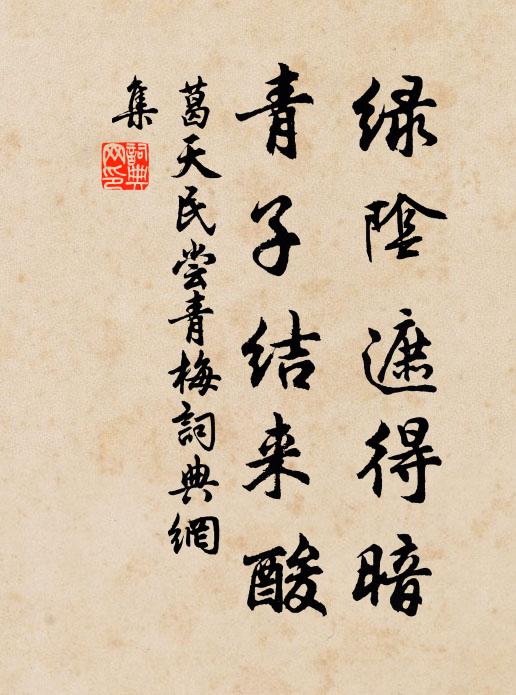 绿陰遮得暗
青子结来酸
葛天民嘗青梅詞典網
集
詞典
网印